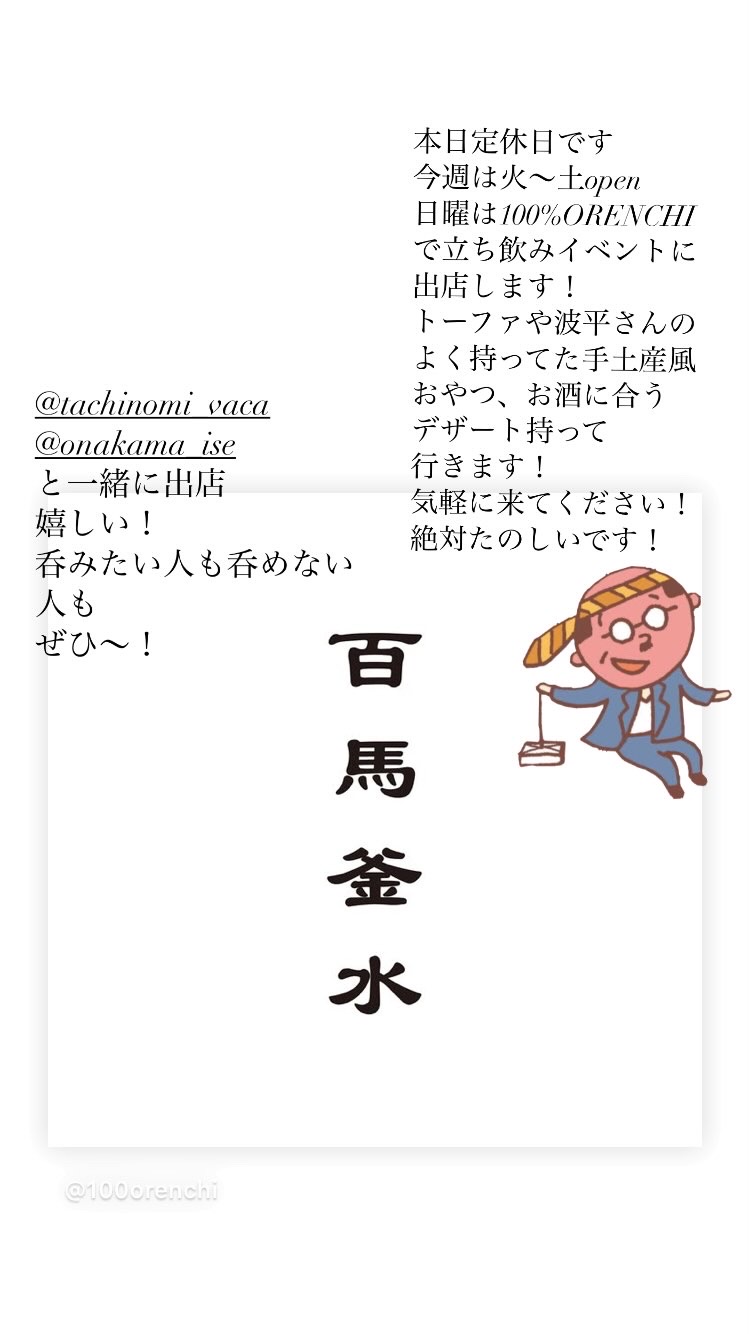 本日定休日です
今週は火〜土open
日曜は100%ORENCHI
で立ち飲みイベントに
出店します！
トーファや波平さんの
よく持ってた手土産風
おやつ、お酒に合う
デザート持って
行きます！
気軽に来てください！
絶対たのしいです！
@tachinomi_vaca
@onakama_ise
と一緒に出店
嬉しい！
呑みたい人も呑めない
人も
ぜひ〜！
百
馬
釜
水
@100orenchi